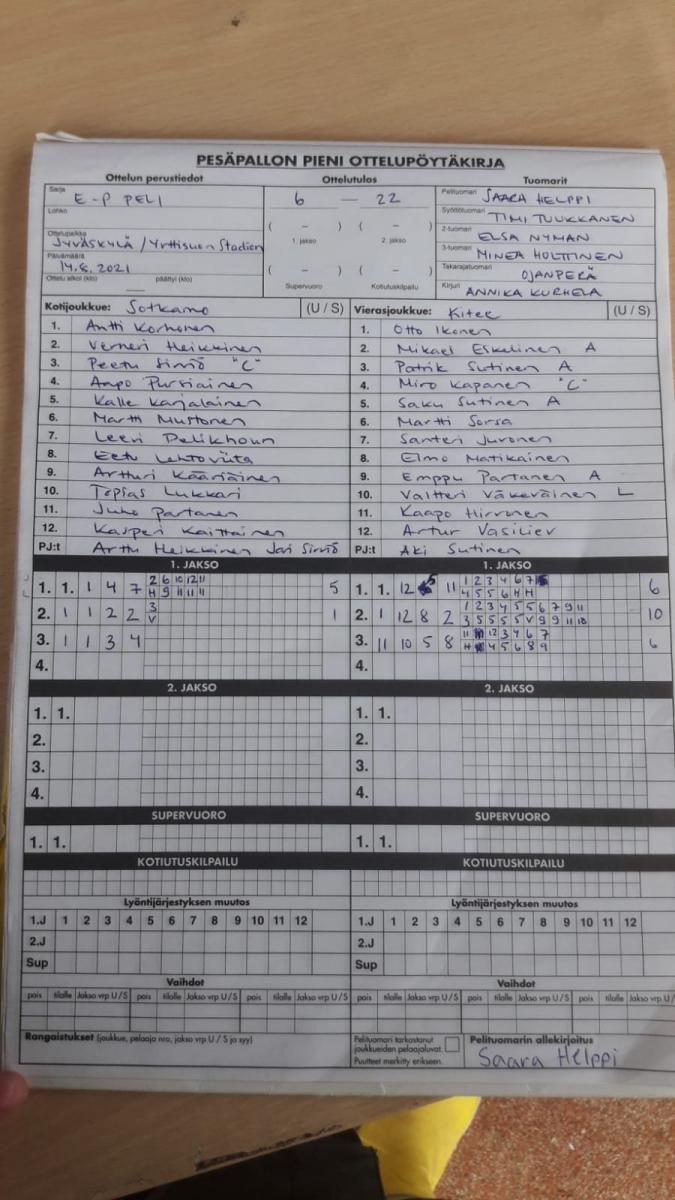 PESÄPALLON PIENI OTTELUPÖYTÄKIRJA
Ottelun perustiedot Ottelutulos Tuomarit
Sarja E-P PELI
Lohko
Ottelupaikka Jyväskylä / Yrttisuon Stadion
Päivämäärä 14.8.2021
Ottelu alkoi (klo) päättyi (klo)
6 — 22
( – ) ( – )
1. jakso 2. jakso
( – ) ( – )
Supervuoro Kotiutuskilpailu
Pelituomari SAARA HELPPI
Syöttötuomari TIMI TUUKKANEN
2-tuomari ELSA NYMAN
3-tuomari MINEA HOLTTINEN
Takarajatuomari OJANPERÄ
Kirjuri ANNIKA KURHELA
Kotijoukkue: Sotkamo (U / S)
1. Antti Korhonen
2. Verneri Heikkinen
3. Peetu Sirviö "C"
4. Aapo Pursiainen
5. Kalle Karjalainen
6. Martti Mustonen
7. Leevi Delikhoun
8. Eetu Lehtoviita
9. Artturi Kääriäinen
10. Topias Lukkari
11. Juho Partanen
12. Kasperi Kaittainen
PJ:t Arttu Heikkinen Jari Sirviö
Vierasjoukkue: Kitee (U / S)
1. Otto Ikonen
2. Mikael Eskelinen A
3. Patrik Sutinen A
4. Miro Kapanen "C"
5. Saku Sutinen A
6. Martti Sorsa
7. Santeri Juronen
8. Elmo Matikainen
9. Emppu Partanen A
10. Valtteri Väkeväinen L
11. Kaapo Hirvonen
12. Artur Vasiliev
PJ:t Aki Sutinen
1. JAKSO
1. 1. 1 4 7 2 6 10 12 11 5
H 9 11 11 11
2. 1 1 2 2 3 1
V
3. 1 1 3 4
4.
1. JAKSO
1. 1. 12 11 1 2 3 4 6 7 6
4 5 5 6 H H
2. 1 12 8 2 1 2 3 4 5 5 6 7 9 11 10
3 5 5 5 5 V 9 9 11 10
3. 11 10 5 8 11 12 3 4 6 7 6
H 4 5 6 8 9
4.
2. JAKSO
1. 1.
2.
3.
4.
2. JAKSO
1. 1.
2.
3.
4.
SUPERVUORO
1. 1.
SUPERVUORO
1. 1.
KOTIUTUSKILPAILU
KOTIUTUSKILPAILU
Lyöntijärjestyksen muutos
1.J 1 2 3 4 5 6 7 8 9 10 11 12
2.J
Sup
Lyöntijärjestyksen muutos
1.J 1 2 3 4 5 6 7 8 9 10 11 12
2.J
Sup
Vaihdot
pois tilalle Jakso vrp U / S pois tilalle Jakso vrp U / S pois tilalle Jakso vrp U / S
Vaihdot
pois tilalle Jakso vrp U / S pois tilalle Jakso vrp U / S pois tilalle Jakso vrp U /
Rangaistukset (joukkue, pelaaja nro, jakso vrp U / S ja syy)
Pelituomari tarkastanut
joukkueiden pelaajaluvat.
Puutteet merkitty erikseen.
Pelituomarin allekirjoitus
Saara Helppi